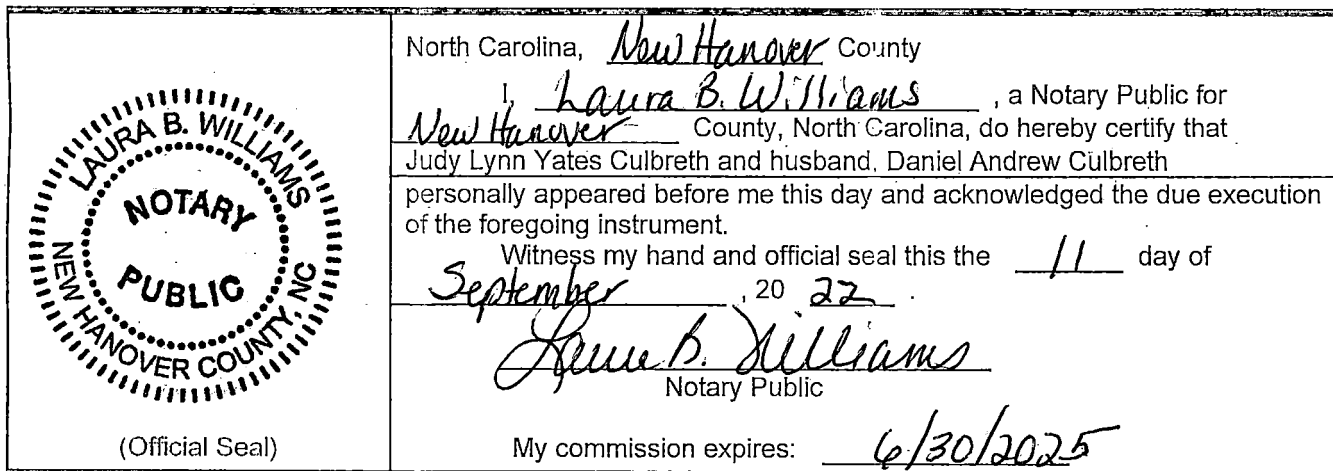 LAURA B. WILLIAMS
NOTARY
PUBLIC
NEW HANOVER COUNTY, NC
(Official Seal)
North Carolina, New Hanover County
I, Laura B. Williams , a Notary Public for
New Hanover County, North Carolina, do hereby certify that
Judy Lynn Yates Culbreth and husband, Daniel Andrew Culbreth
personally appeared before me this day and acknowledged the due execution
of the foregoing instrument.
Witness my hand and official seal this the 11 day of
September , 20 22 .
Laura B. Williams
Notary Public
My commission expires: 6/30/2025